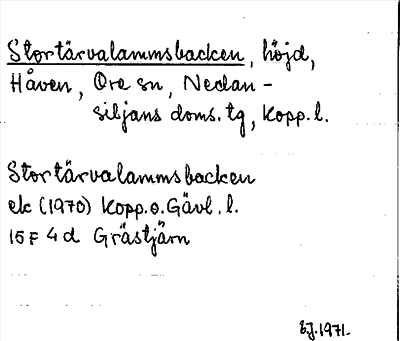 Stortärvalammsbacken, höjd,
Håven, Ore sn, Nedan-
siljans doms. tg, Kopp. l.
Stortärvalammsbacken
ek (1970) Kopp. o. Gävl. l.
15F 4d Grästjärn
EJ. 1971.